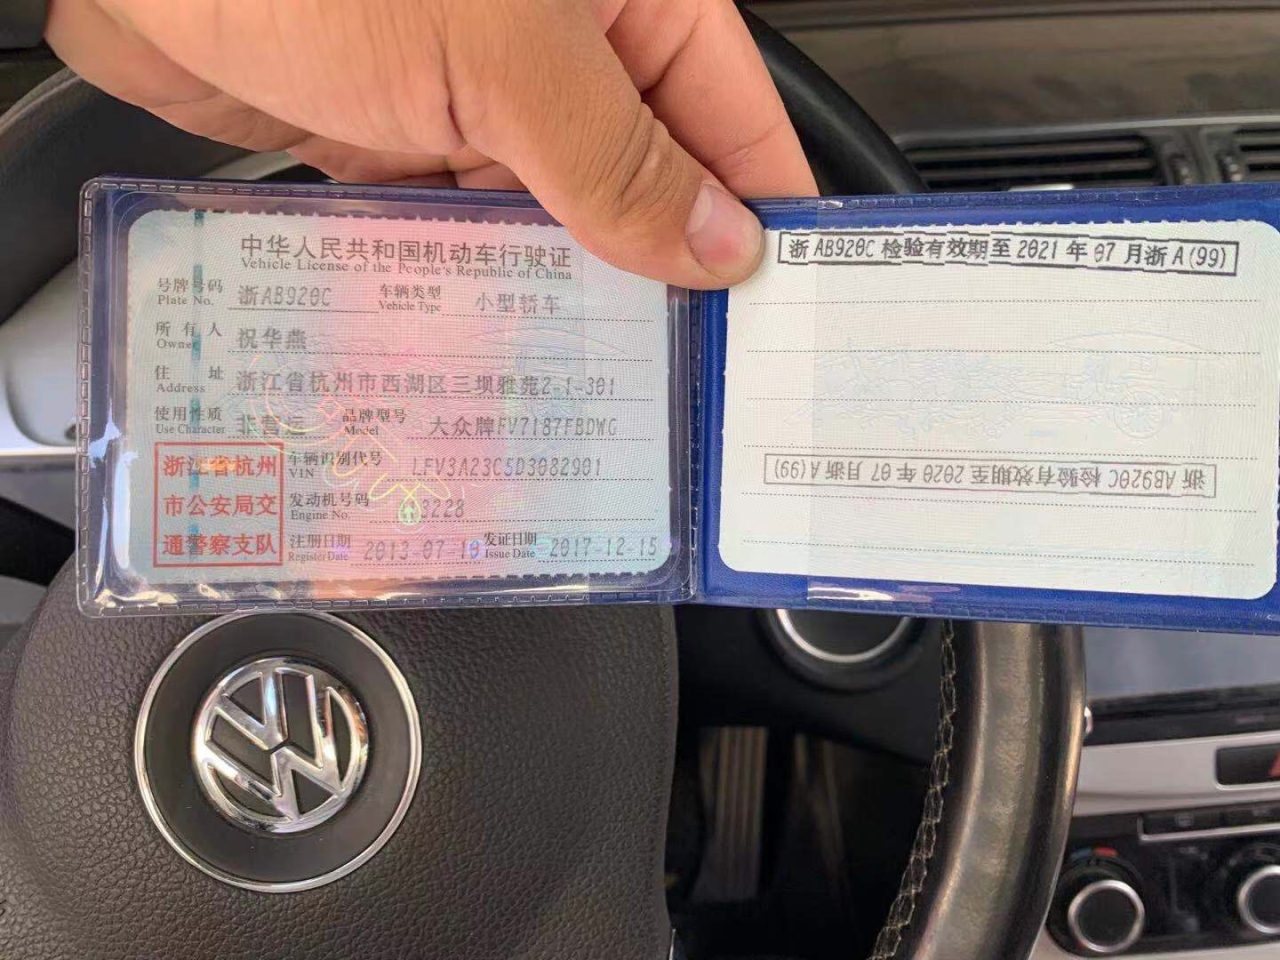 中华人民共和国机动车行驶证
Vehicle License of the People's Republic of China
号牌号码 浙AB920C 车辆类型 小型轿车
Plate No. Vehicle Type
所有人 祝华燕
Owner
住址 浙江省杭州市西湖区三坝雅苑2-1-301
Address
使用性质 非营运 品牌型号 大众牌FV7187FBDWG
Use Character Model
浙江省杭州
市公安局交
通警察支队
车辆识别代号 LFV3A23C5D3082901
VIN
发动机号码 3228
Engine No.
注册日期 2013-07-10 发证日期 2017-12-15
Register Date Issue Date
浙AB920C 检验有效期至2021年07月浙A(99)
浙AB920C 检验有效期至2020年07月浙A(99)